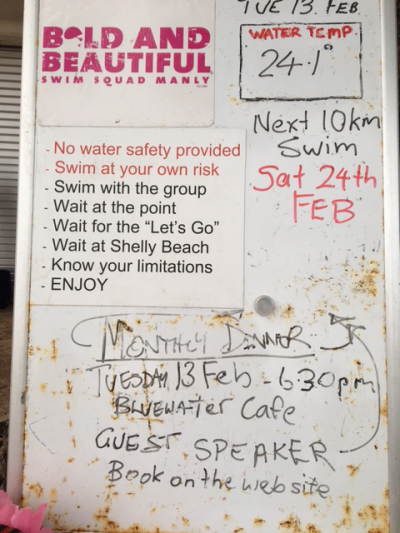 TUE 13. FEB
BOLD AND
BEAUTIFUL
SWIM SQUAD MANLY
WATER TEMP
24.1°
Next 10km
Swim
Sat 24th
FEB
- No water safety provided
- Swim at your own risk
- Swim with the group
- Wait at the point
- Wait for the “Let's Go”
- Wait at Shelly Beach
- Know your limitations
- ENJOY
MONTHLY DINNER
TUESDAY 13 Feb - 630pm
BLUEWATER Cafe
GUEST SPEAKER
Book on the website